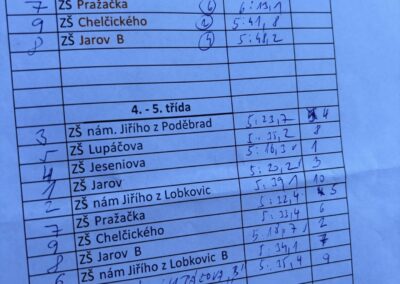 7 ZŠ Pražačka (6) 6:13,1
9 ZŠ Chelčického (2) 5:41,8
8 ZŠ Jarov B (4) 5:48,2
4. - 5. třída
3 ZŠ nám. Jiřího z Poděbrad 5:23,7 4
5 ZŠ Lupáčova 5:35,2 8
4 ZŠ Jeseniova 5:16,3 1
1 ZŠ Jarov 5:20,2 3
2 ZŠ nám Jiřího z Lobkovic 5:39,1 10
7 ZŠ Pražačka 5:28,4 5
9 ZŠ Chelčického 5:33,4 6
8 ZŠ Jarov B 2
6 ZŠ nám Jiřího z Lobkovic B 5:34,1 7
5:35,4 9